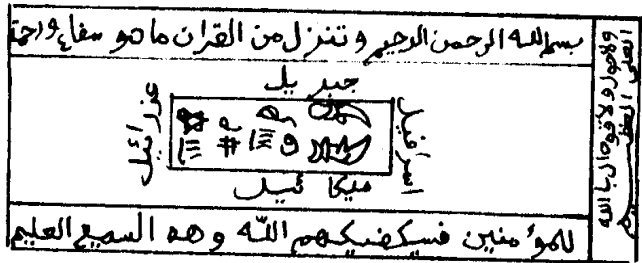 بسم الله الرحمن الرحيم و تنزل من القران ما هو شفاء و رحمة
جبر يل
عزر ائيل
اسرافيل
ميكا ئيل
للمؤ منين فسيكفيكهم الله و هه السميع العليم
ولا حول ولا قوه الا بالله
العلى العظيم